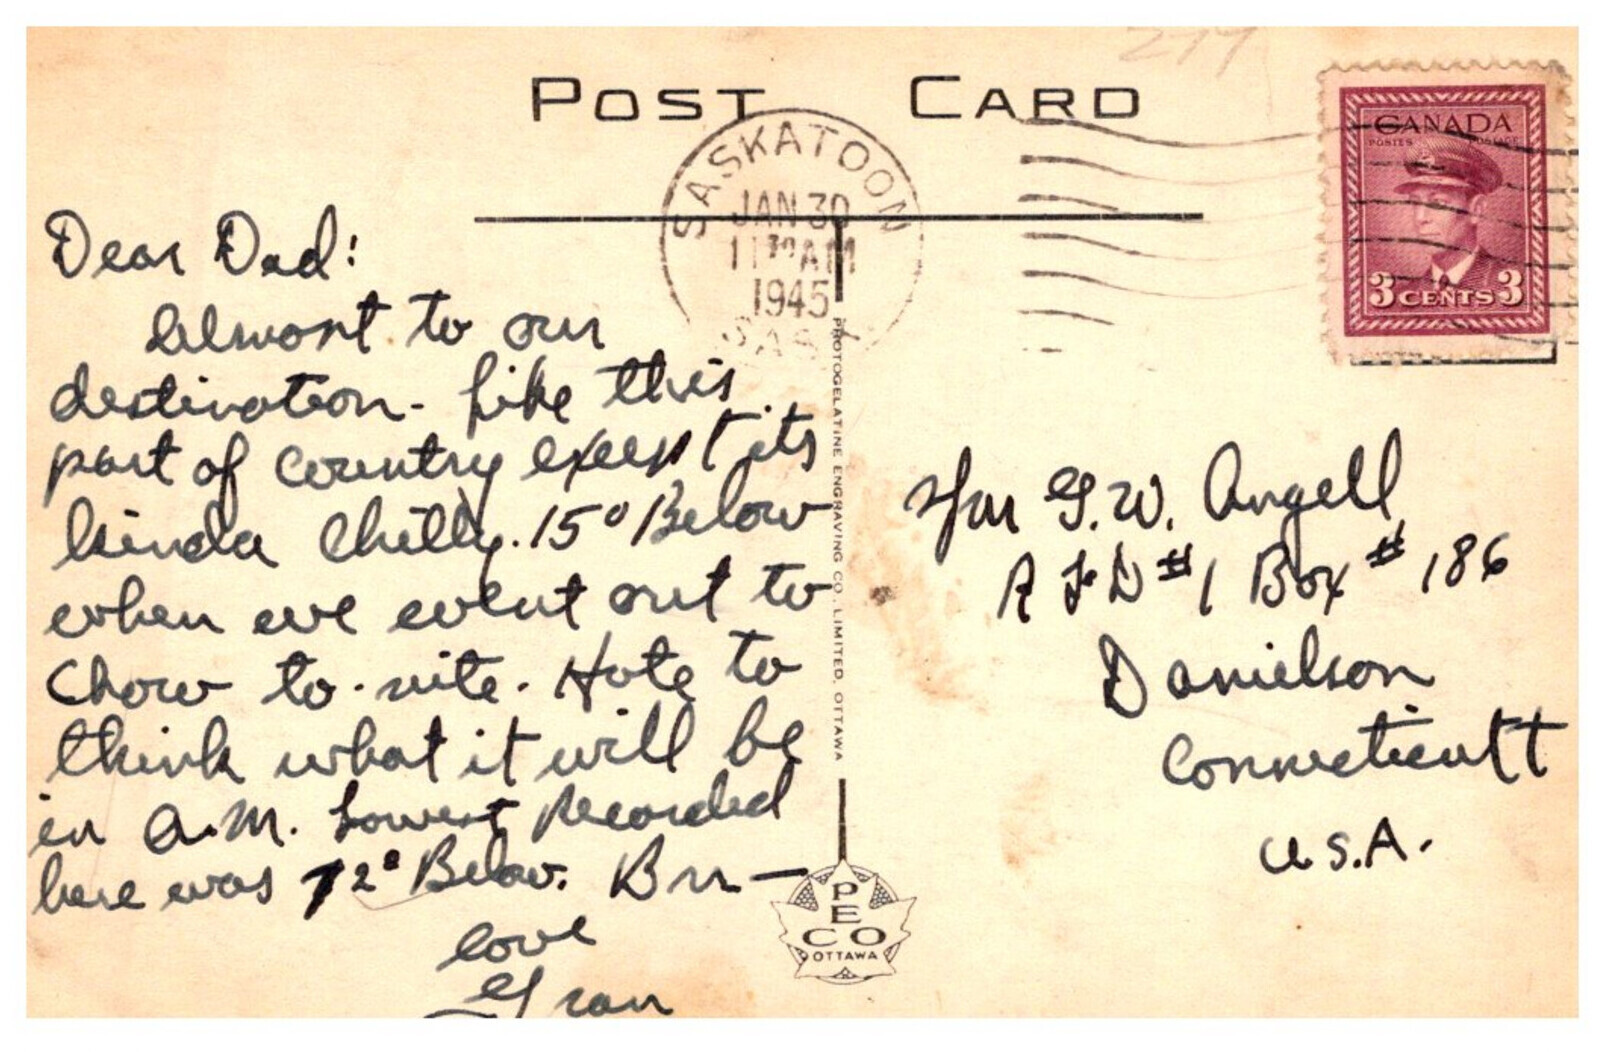 POST CARD
SASKATOON
JAN 30
11 30 AM
1945
SASK
CANADA
POSTES POSTAGE
3 CENTS 3
Dear Dad:
Almost to our
destination - Like this
part of country except its
kinda chilly. 15° Below
when we went out to
Chow to-nite. Hate to
think what it will be
in A.M. Lowest recorded
here was 72° Below. Brr —
Love
Gran
PHOTOGELATINE ENGRAVING CO., LIMITED, OTTAWA
PECO
OTTAWA
Mr G. W. Angell
R F D #1 Box # 186
Danielson
Connecticutt
U.S.A.